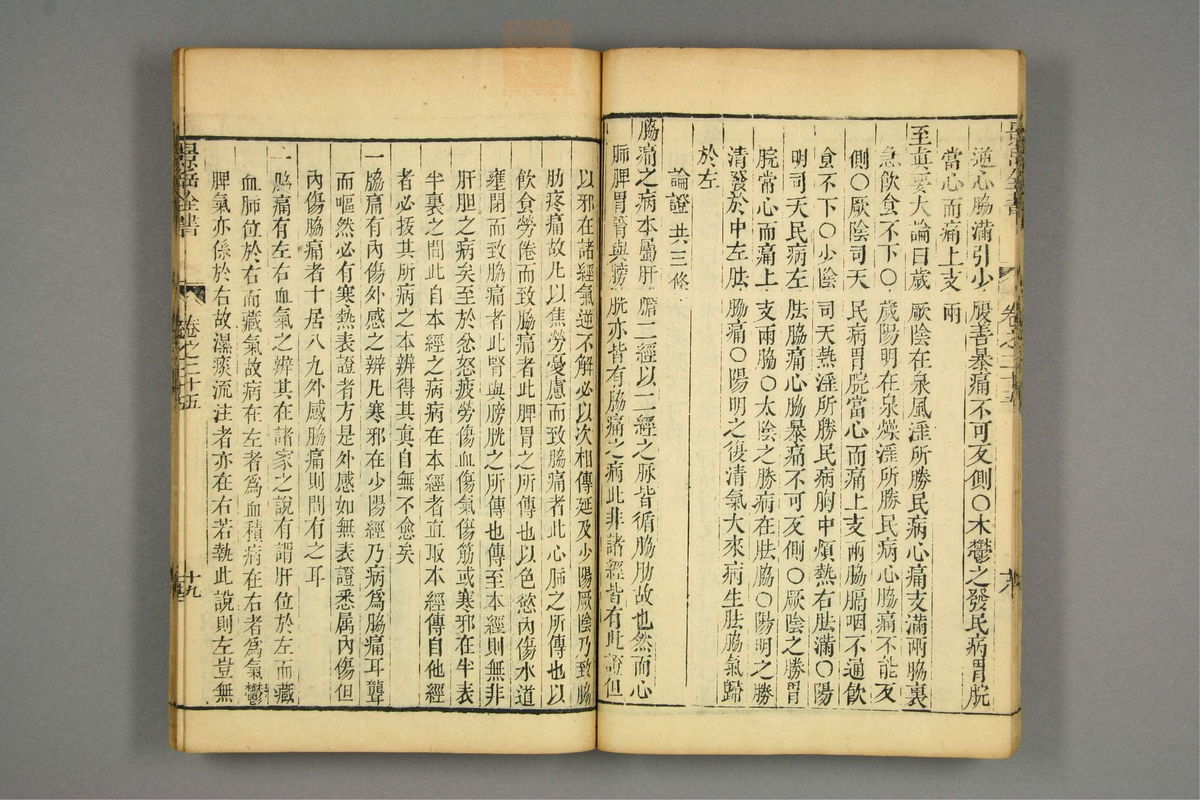 逆心脇滿引少腹善暴痛不可反側〇木鬱之發民病胃脘
當心而痛上支兩
至眞要大論曰歲厥陰在泉風淫所勝民病心痛支滿兩脇裏
急飲食不下〇歲陽明在泉燥淫所勝民病心脇痛不能反
側〇厥陰司天民病胃脘當心而痛上支兩脇膈咽不通飲
食不下〇少陰司天熱淫所勝民病胸中煩熱右胠滿〇陽
明司天民病左胠脇痛心脇暴痛不可反側〇厥陰之勝胃
脘當心而痛上支兩脇〇太陰之勝病在胠脇〇陽明之勝
清發於中左胠脇痛〇陽明之復清氣大來病生胠脇氣歸
於左
論證共三條
脇痛之病本屬肝膽二經以二經之脉皆循脇肋故也然而心
肺脾胃腎與膀胱亦皆有脇痛之病此非諸經皆有此證但
以邪在諸經氣逆不解必以次相傳延及少陽厥陰乃致脇
肋疼痛故凡以焦勞憂慮而致脇痛者此心肺之所傳也以
飲食勞倦而致脇痛者此脾胃之所傳也以色慾內傷水道
壅閉而致脇痛者此腎與膀胱之所傳也傳至本經則無非
肝胆之病矣至於忿怒疲勞傷血傷氣傷筋或寒邪在半表
半裏之間此自本經之病病在本經者直取本經傳自他經
者必拔其所病之本辨得其眞自無不愈矣
一脇痛有內傷外感之辨凡寒邪在少陽經乃病爲脇痛耳聾
而嘔然必有寒熱表證者方是外感如無表證悉属內傷但
內傷脇痛者十居八九外感脇痛則間有之耳
一脇痛有左右血氣之辨其在諸家之說有謂肝位於左而藏
血肺位於右而藏氣故病在左者爲血積病在右者爲氣鬱
脾氣亦係於右故濕痰流注者亦在右若執此說則左豈無
景岳全書
卷之二十五
十九